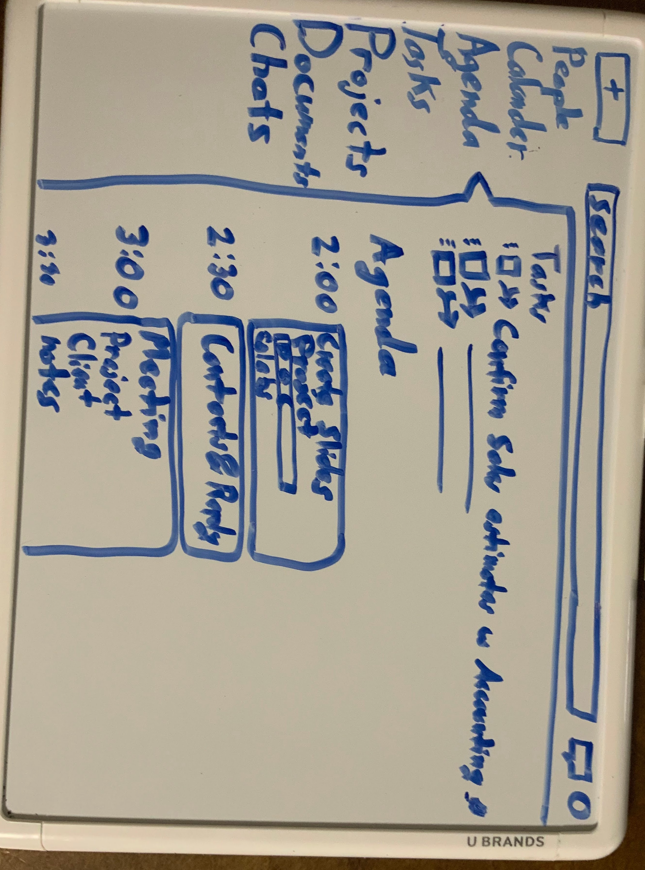 +
Search
People
Calander
Agenda
Tasks
Projects
Documents
Chats
Tasks
Confirm Sales estimates w Accounting #
Agenda
2:00
Create Slides
Product
2:30
3:00
Meeting
Project
Client
notes
3:30
U BRANDS